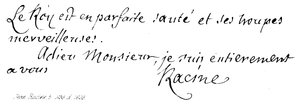 Le Roy est en parfaite santé et ses troupes
merveilleuses.
Adieu Monsieur, je suis entierement
a vous
Racine